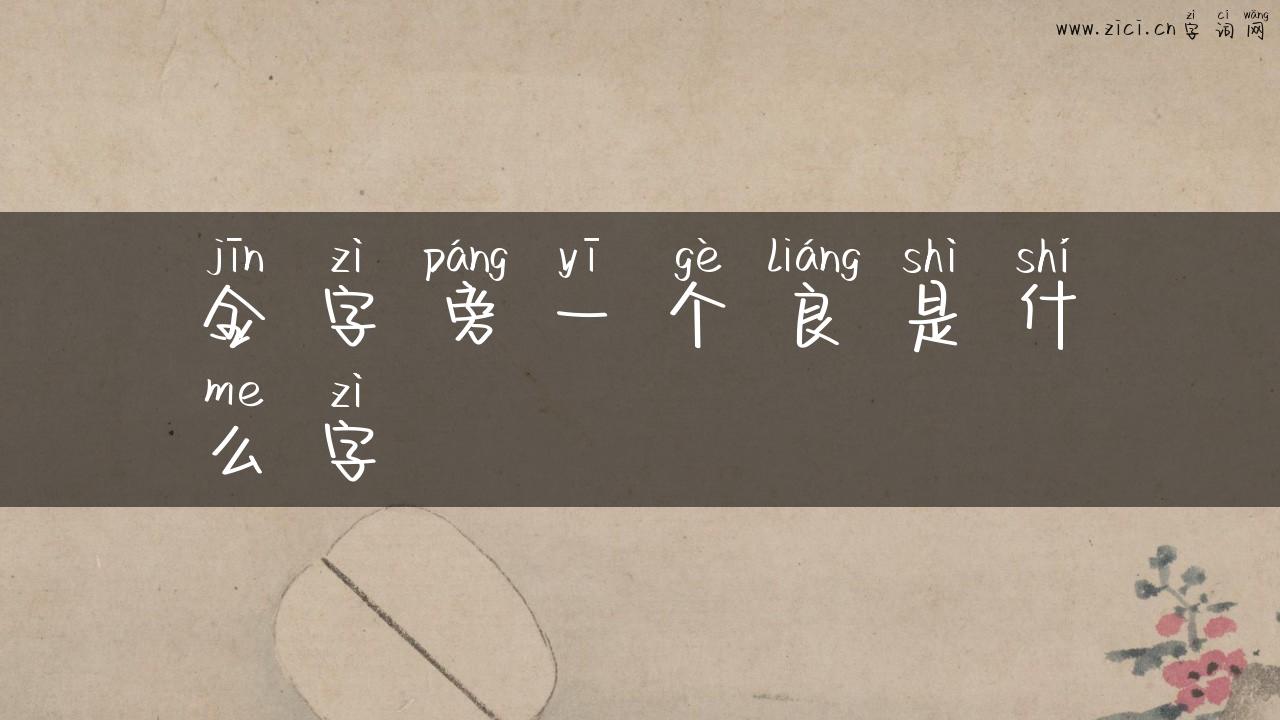 zì cí wǎng
www.zici.cn 字 词 网
jīn zì páng yī gè liáng shì shí
金 字 旁 一 个 良 是 什
me zì
么 字